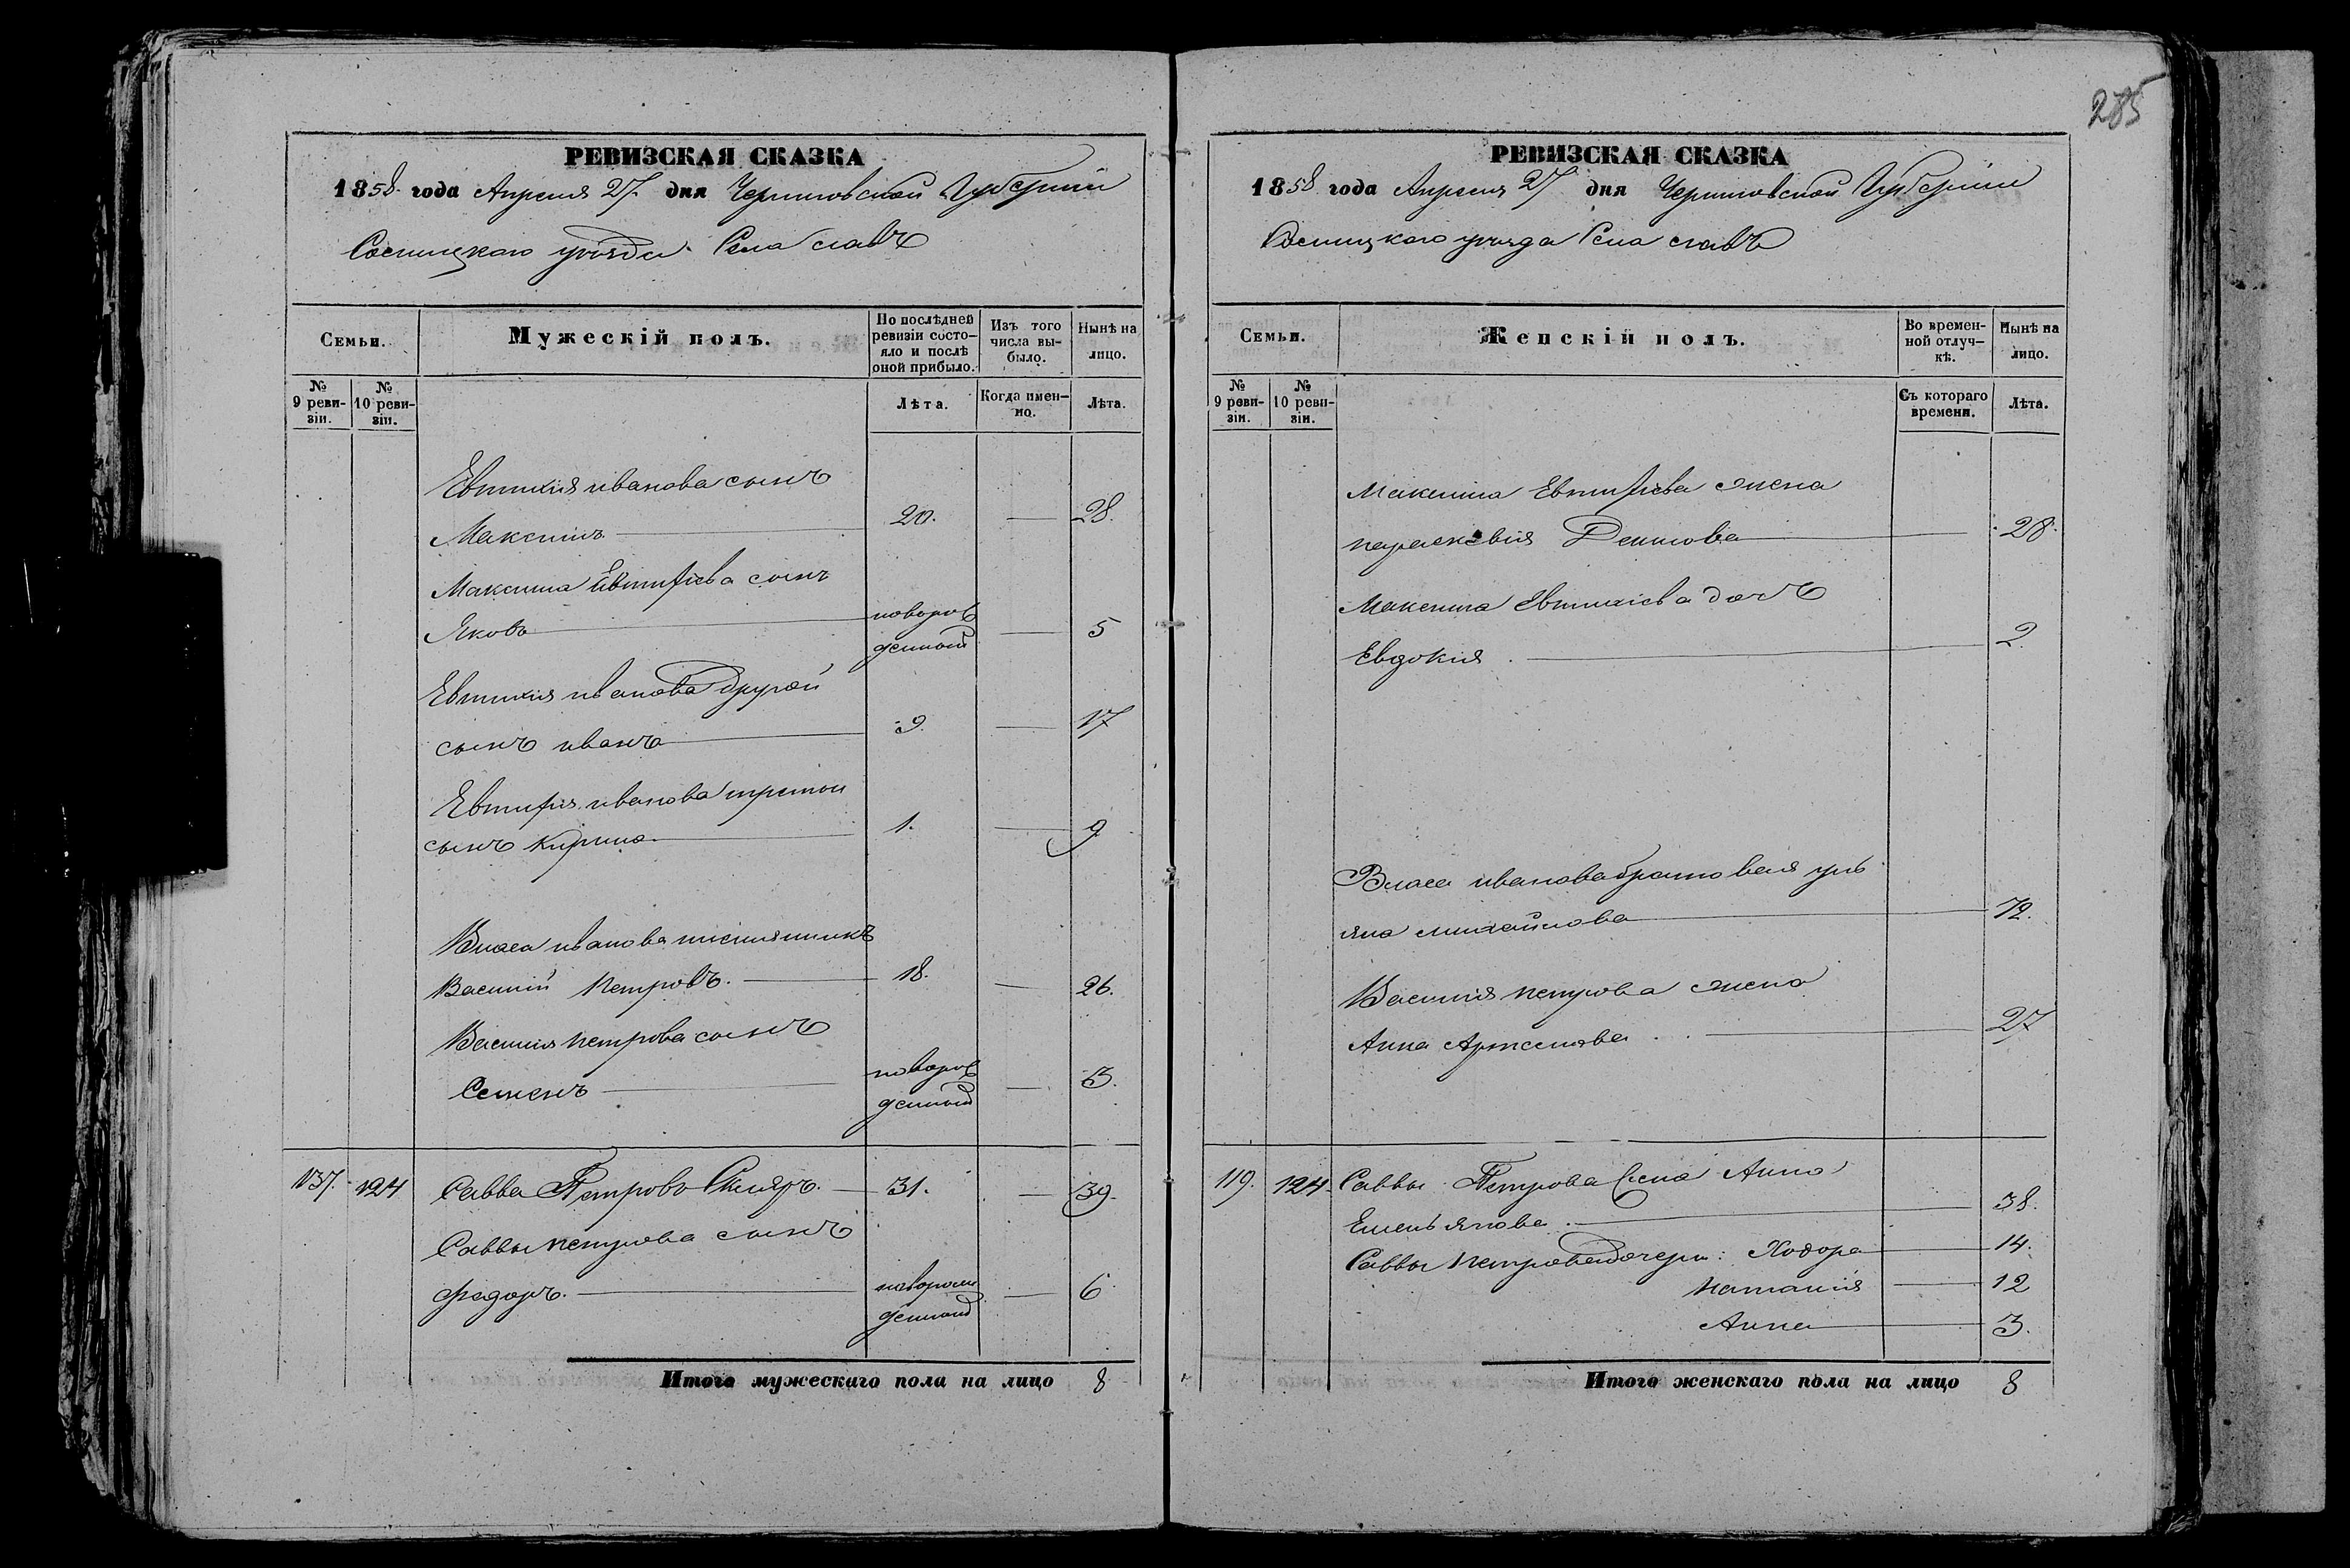 285
РЕВИЗСКАЯ СКАЗКА
1858. года Апреля 27. дня Черниговской Губернии
Сосницкаго уѣзда. Села
Семьи.
Мужескій полъ.
По послѣдней ревизіи состояло и послѣ оной прибыло.
Изъ того числа выбыло.
Нынѣ на лицо.
№ 9 ревизіи.
№ 10 ревизіи.
Лѣта.
Когда именно.
Лѣта.
Евтихія иванова сынъ
Максимъ 20. — 28.
Максима Евтифіева сынъ
Яковъ новорожденный — 5
Евтихія иванова другой
сынъ иванъ 9. — 17
Евтифія иванова третий
сынъ Кирило 1. — 9
Власа иванова племянникъ
Василий Петровъ. 18. — 26.
Василия петрова сынъ
Семенъ новорожденный — 3.
137. 124 Савва Петровъ Скляръ. 31. — 39.
Саввы петрова сынъ
Федоръ. новорожденный — 6
Итого мужескаго пола на лицо 8
РЕВИЗСКАЯ СКАЗКА
1858 года Апреля 27 дня Черниговской Губернии
Сосницкаго уѣзда Села
Семьи.
Женскій полъ.
Во временной отлучкѣ.
Нынѣ на лицо.
№ 9 ревизіи.
№ 10 ревизіи.
Съ котораго времени.
Лѣта.
Максима Евтифіева жена
параскевия Демидова 28.
Максима Евтихіева дочь
Евдокия. 2.
Власа иванова братовая уль
яна михайлова 72.
Василия петрова жена
Анна Артемова 27
119. 124. Саввы Петрова жена Анна
Емельянова. 38.
Саввы петрова дочери: Ходора 14.
Наталия 12
Анна 3.
Итого женскаго пола на лицо 8